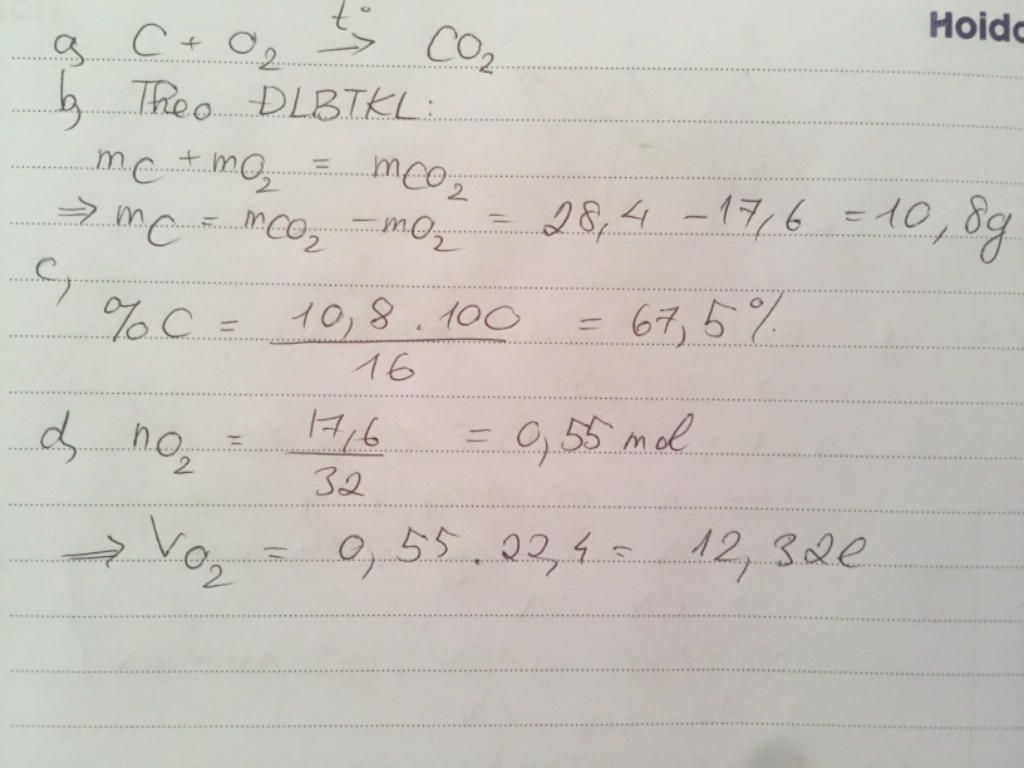 Hoidc
a, C + O₂ →(t°) CO₂
b, Theo ĐLBTKL:
mC + mO₂ = mCO₂
⇒ mC = mCO₂ - mO₂ = 28,4 - 17,6 = 10,8g
c,
%C = 10,8 . 100 / 16 = 67,5%
d, nO₂ = 17,6 / 32 = 0,55 mol
⇒ VO₂ = 0,55 . 22,4 = 12,32l